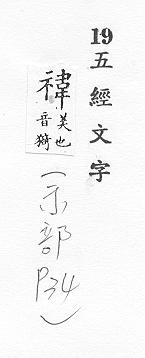 19五經文字
禕美也音猗
(示部P34)